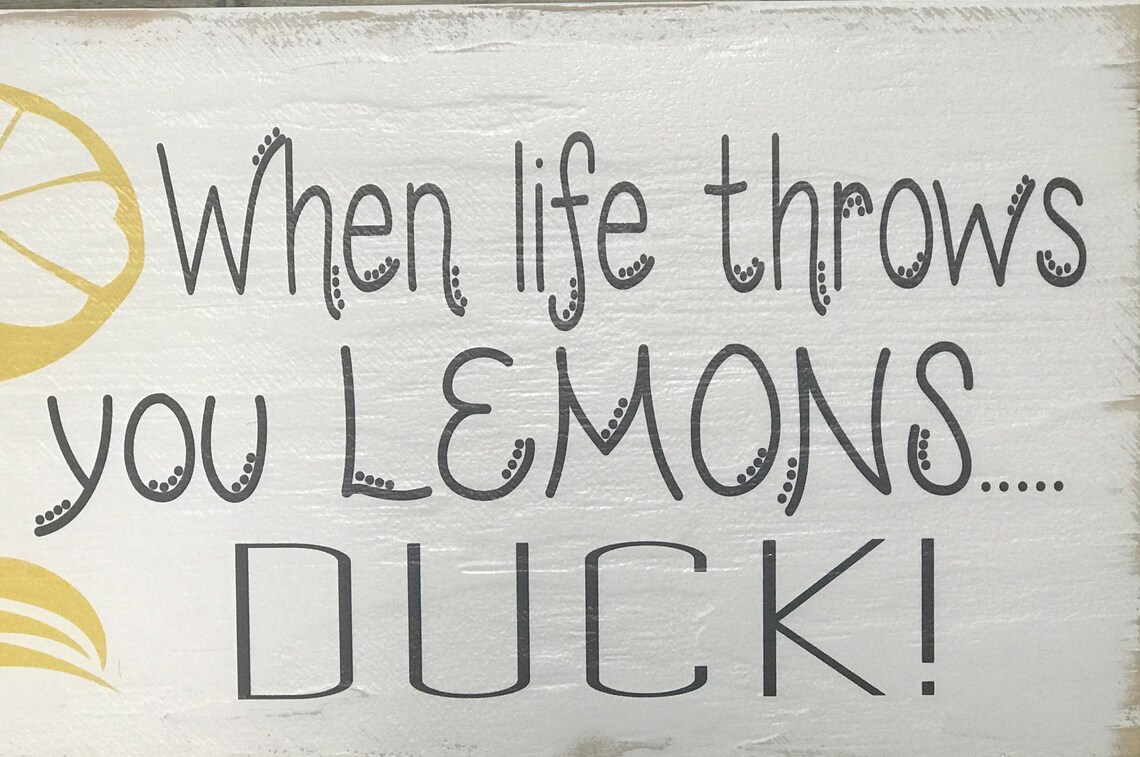 When life throws
you LEMONS.....
DUCK!